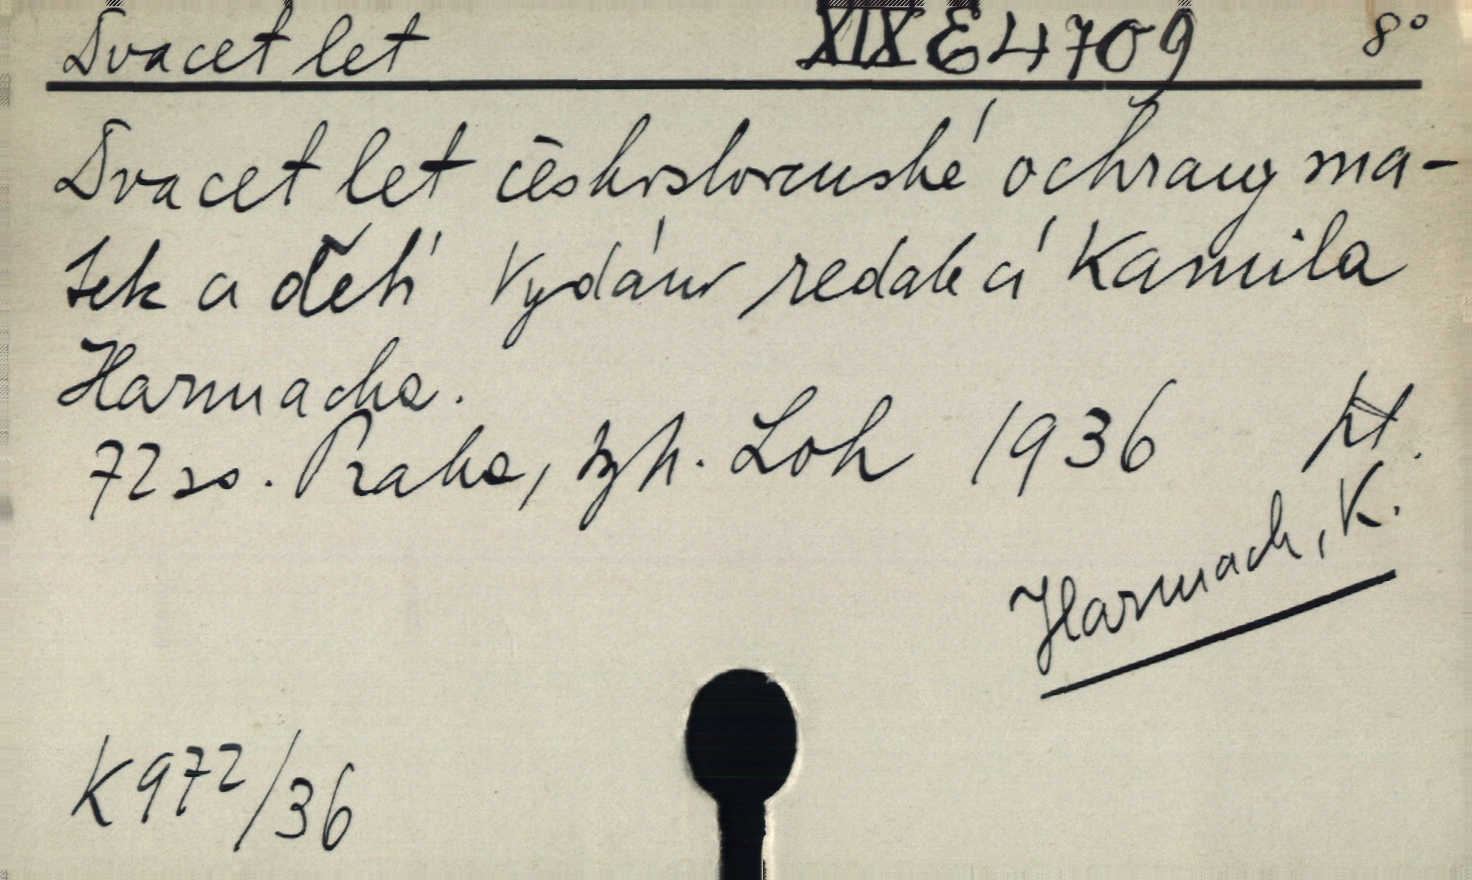 Dvacet let XIX E 4709 8°
Dvacet let československé ochrany ma-
tek a dětí Vydáno redakcí Kamila
Harmacha.
72 so. Praha, Loh 1936
Harmach, K.
K 972/36